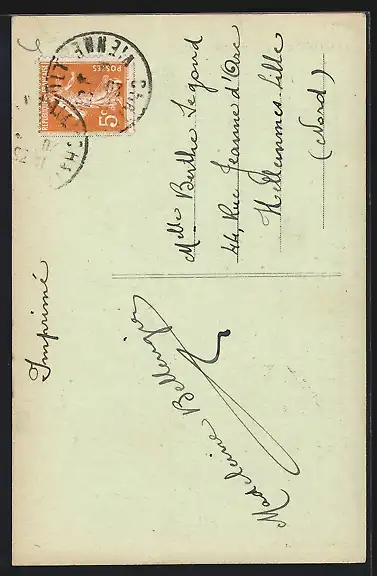 Imprimé
Madeleine Bellenger
Melle Berthe Legond
44, Rue Jeanne d'Arc
Hellemmes Lille
(Nord)
POSTES
5c
VIENNE